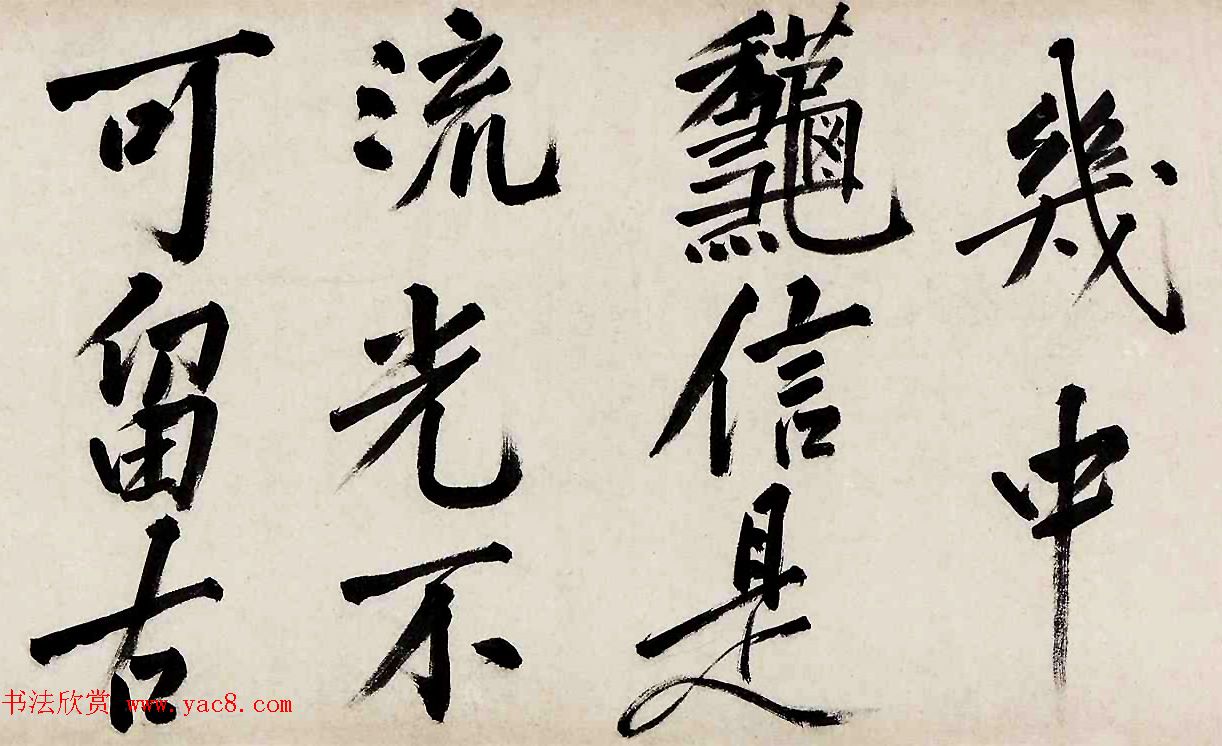 幾中
龝信是
流光不
可留古
书法欣赏 www.yac8.com